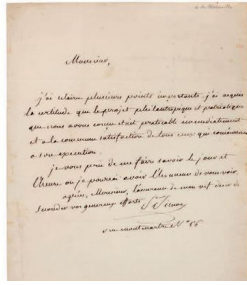 Monsieur,
j'ai éclairé plusieurs points importants. j'ai acquis
la certitude que le projet philantropique et patriotique
que nous avons conçu est praticable immédiatement
et à la commune satisfaction de tous ceux qui
à son exécution
je vous prie de me faire savoir le jour et
l'heure où je pourrai avoir l'honneur de vous voir
agréez, Monsieur, l'assurance de mon vif désir de
seconder vos généreux efforts
St Simon
rue montmartre N°